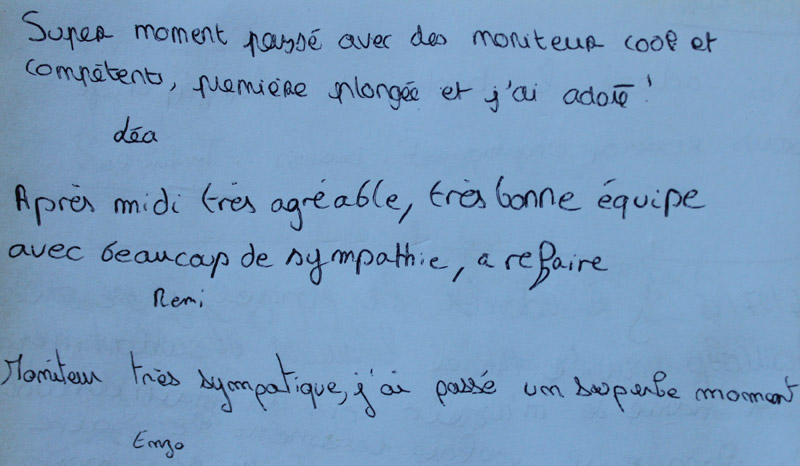 Super moment passé avec des moniteur cool et
compétents, première plongée et j'ai adoré !
Léa
Après midi très agréable, très bonne équipe
avec beaucoup de sympathie, a refaire
Remi
Moniteur très sympatique, j'ai passé un superbe moment
Enzo